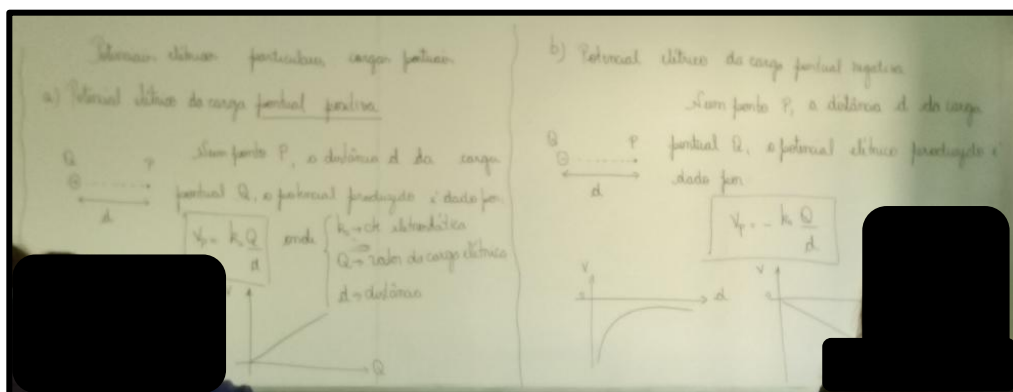 Potenciais elétricos particulares cargas pontuais
a) Potencial elétrico da carga pontual positiva
Num ponto P, a distância d da carga
Q P
⊕
d
pontual Q, o potencial produzido é dado por
Vp = k₀ Q/d
onde
k₀ → cte eletrostática
Q → valor da carga elétrica
d → distância
V
Q
b) Potencial elétrico da carga pontual negativa
Num ponto P, a distância d da carga
Q P
⊖
d
pontual Q, o potencial elétrico produzido é
dado por
Vp = - k₀ Q/d
V
d
V